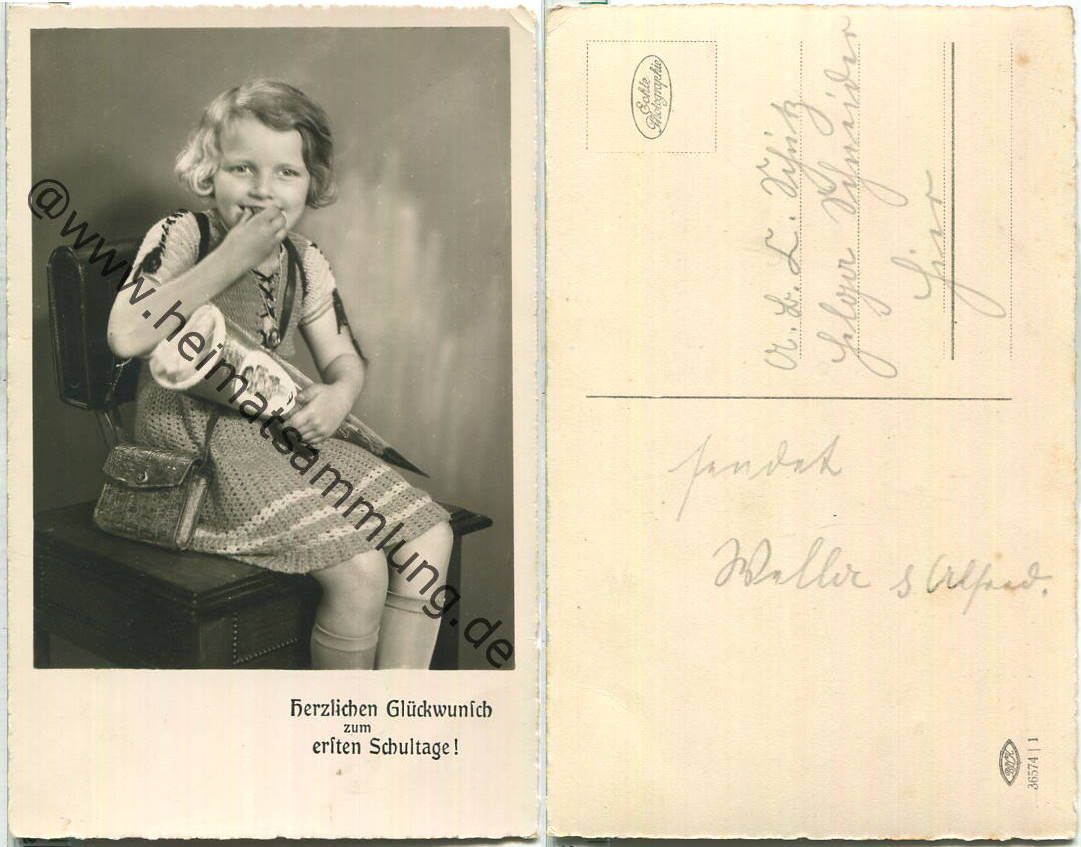 @www.heimatsammlung.de
Herzlichen Glückwunſch
zum
erſten Schultage!
Echte
Photographie
A. B. C. Schütz
Helga Schneider
Hier
sendet
Alfred.
36574 | 1